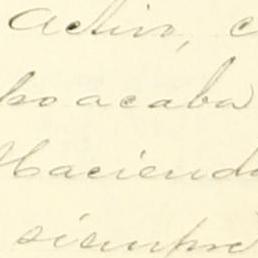 activo, c
bo acaba
Hacienda
siempre